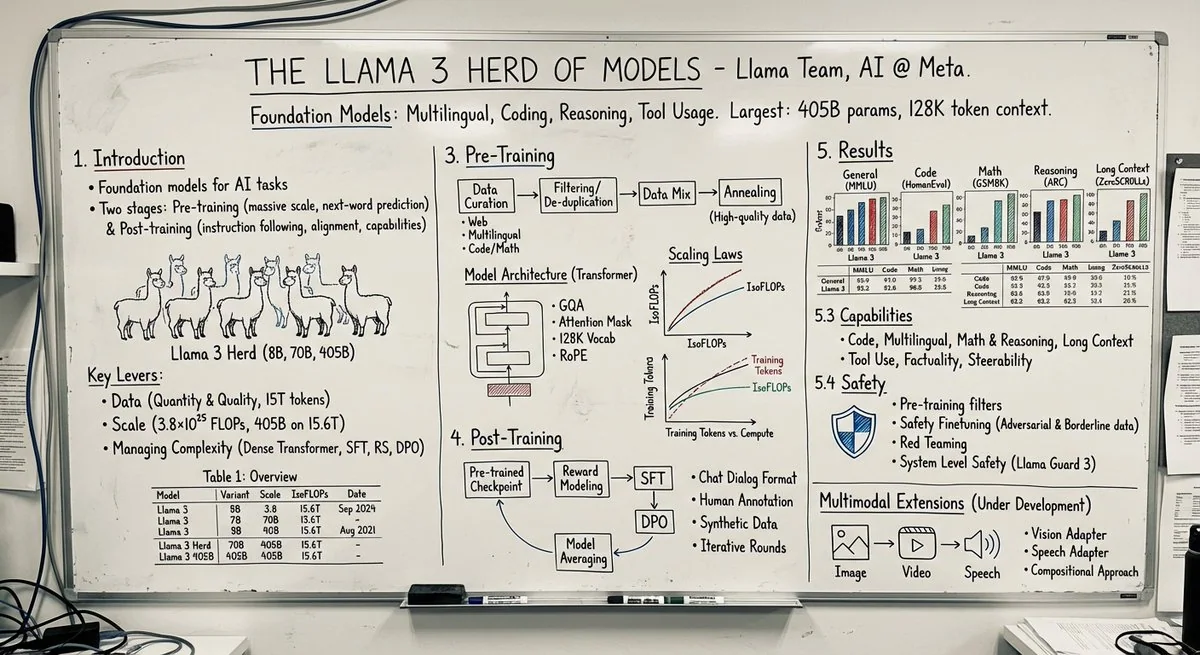 THE LLAMA 3 HERD OF MODELS – Llama Team, AI @ Meta.
Foundation Models: Multilingual, Coding, Reasoning, Tool Usage. Largest: 405B params, 128K token context.
1. Introduction
• Foundation models for AI tasks
• Two stages: Pre-training (massive scale, next-word prediction)
& Post-training (instruction following, alignment, capabilities)
Llama 3 Herd (8B, 70B, 405B)
Key Levers:
• Data (Quantity & Quality, 15T tokens)
• Scale (3.8×10²⁵ FLOPs, 405B on 15.6T)
• Managing Complexity (Dense Transformer, SFT, RS, DPO)
Table 1: Overview
Model Variant Scale IsoFLOPs Date
Llama 3 3.8 15.6T Sep 2024
Llama 3 70B 13.6T –
Llama 3 15.6T Aug 2021
Llama 3 Herd 70B 405B 15.6T –
Llama 3 405B 405B 405B 15.6T –
3. Pre-Training
Data Curation
Filtering/
De-duplication
Data Mix
Annealing
(High-quality data)
• Web
• Multilingual
• Code/Math
Model Architecture (Transformer)
• GQA
• Attention Mask
• 128K Vocab
• RoPE
Scaling Laws
IsoFLOPs
IsoFLOPs
IsoFLOPs
Training Tokens
Training Tokens
IsoFLOPs
Training Tokens vs. Compute
4. Post-Training
Pre-trained Checkpoint
Reward Modeling
SFT
DPO
Model Averaging
• Chat Dialog Format
• Human Annotation
• Synthetic Data
• Iterative Rounds
5. Results
General (MMLU)
Code (HumanEval)
Math (GSM8K)
Reasoning (ARC)
Long Context (ZeroSCROLLs)
Llama 3
Llama 3
Llama 3
Llama 3
Llama 3
MMLU Code Math
General
MMLU Code Math
Code
Code
Reasoning
Long Context
5.3 Capabilities
• Code, Multilingual, Math & Reasoning, Long Context
• Tool Use, Factuality, Steerability
5.4 Safety
• Pre-training filters
• Safety Finetuning (Adversarial & Borderline data)
• Red Teaming
• System Level Safety (Llama Guard 3)
Multimodal Extensions (Under Development)
Image
Video
Speech
• Vision Adapter
• Speech Adapter
• Compositional Approach